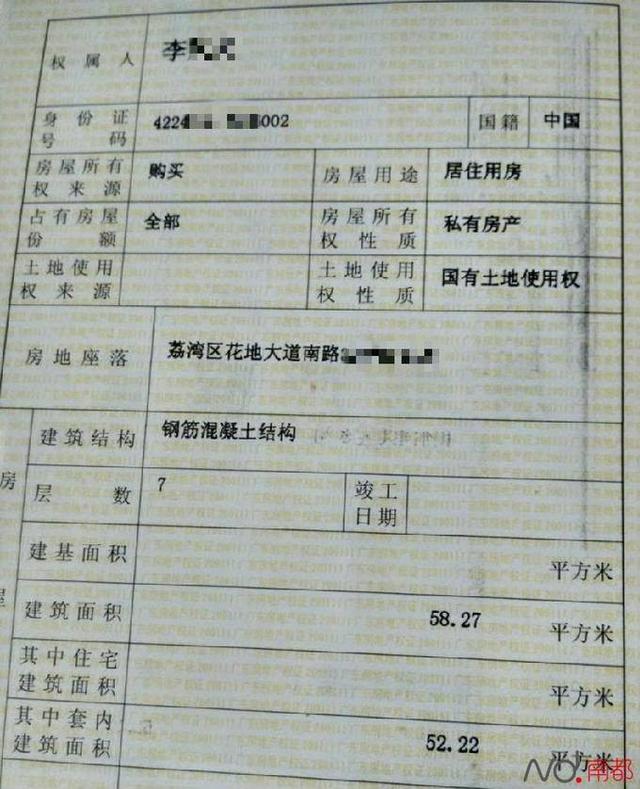 权属人 李
身份证号码 4224 002 国籍 中国
房屋所有权来源 购买 房屋用途 居住用房
占有房屋份额 全部 房屋所有权性质 私有房产
土地使用权来源 土地使用权性质 国有土地使用权
房地座落 荔湾区花地大道南路
建筑结构 钢筋混凝土结构
房
层数 7 竣工日期
建基面积 平方米
建筑面积 58.27 平方米
其中住宅建筑面积 平方米
其中套内建筑面积 52.22 平方米
NO.南都